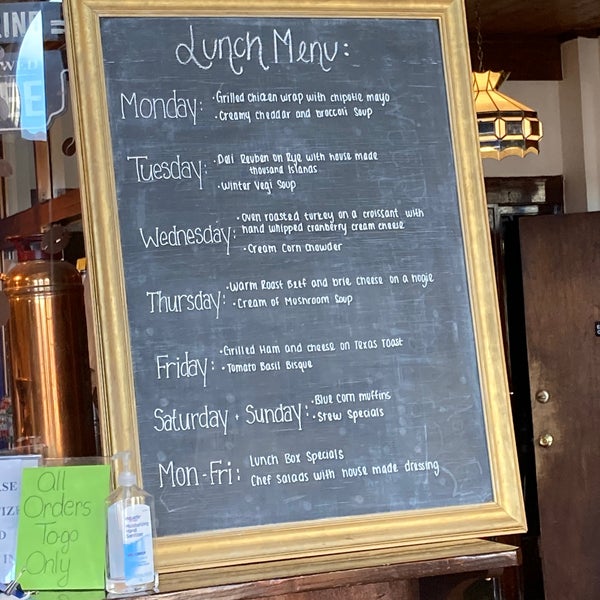 Lunch Menu:
Monday:
• Grilled chicken wrap with chipotle mayo
• Creamy cheddar and broccoli Soup
Tuesday:
• Deli Reuben on Rye with house made
thousand islands
• Winter Vegi Soup
Wednesday:
• Oven roasted turkey on a croissant with
hand whipped cranberry cream cheese
• Cream Corn Chowder
Thursday:
• Warm Roast Beef and brie cheese on a hogie
• Cream of Mushroom Soup
Friday:
• Grilled Ham and cheese on Texas Toast
• Tomato Basil Bisque
Saturday + Sunday:
• Blue Corn muffins
• Stew Specials
Mon-Fri:
Lunch Box Specials
Chef Salads with house made dressing
All
Orders
To-go
Only